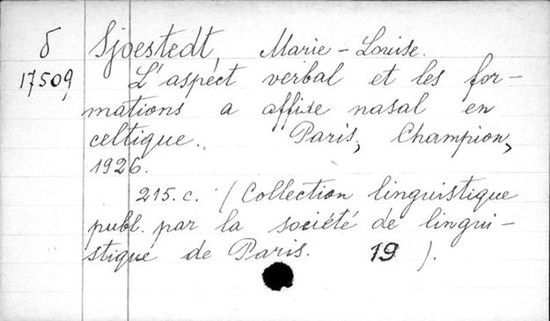 δ Sjoestedt, Marie-Louise.
17509 L'aspect verbal et les for-
mations a affixe nasal en
celtique. Paris, Champion,
1926.
215.c. (Collection linguistique
publ. par la société de lingui-
stique de Paris. 19).